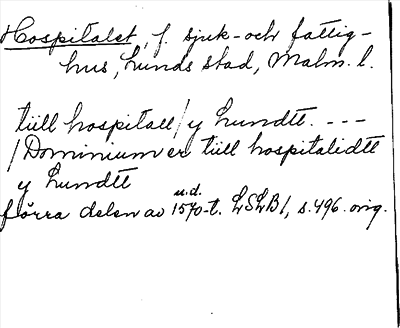 Hospitalet, f. sjuk- och fattig-
hus, Lunds stad, Malm. l.
tiill hospitall / y Lundtt. ---
/ Dominium er tiill hospitalidtt
y Lundtt
u.d.
förra delen av 1570-t. LSLB 1, s. 496. orig.